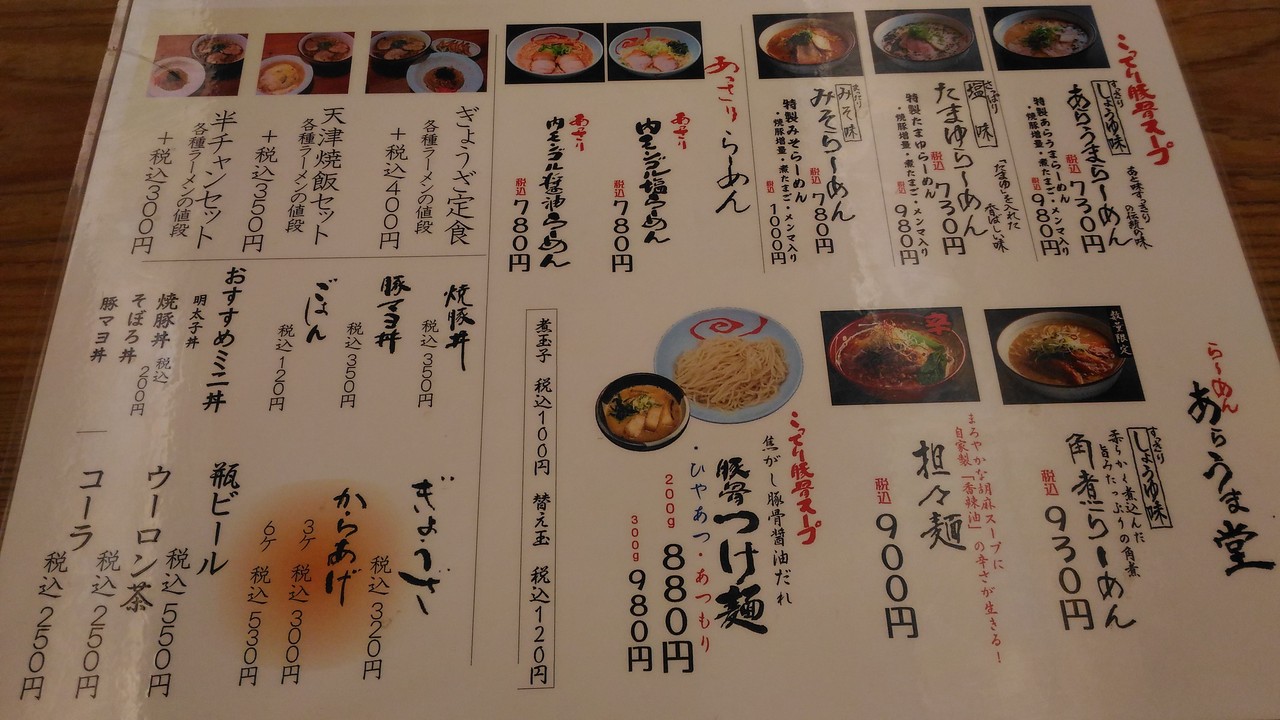 らーめん
あらうま堂
こってり豚骨スープ
すっきり
しょうゆ味
あと味すっきり
の伝統の味
あらうまらーめん
税込730円
特製あらうまらーめん
・焼豚増量・煮たまご・メンマ入り
税込980円
さっぱり
塩味
「たまゆ」を入れた
香ばしい味
たまゆらーめん
税込730円
特製たまゆらーめん
・焼豚増量・煮たまご・メンマ入り
税込980円
みそ味
みそらーめん
税込780円
特製みそらーめん
・焼豚増量・煮たまご・メンマ入り
税込1000円
あっさりらーめん
あっさり
内モンゴル塩らーめん
税込780円
あっさり
内モンゴル醤油らーめん
税込780円
数量限定
すっきり
しょうゆ味
柔らかく煮込んだ
旨みたっぷりの角煮
角煮らーめん
税込930円
辛
まろやかな胡麻スープに
自家製「香辣油」の辛さが生きる!
担々麺
税込900円
こってり豚骨スープ
焦がし豚骨醤油だれ
豚骨つけ麺
・ひやあつ・あつもり
200g 880円
300g 980円
煮玉子 税込100円 替え玉 税込120円
ぎょうざ定食
各種ラーメンの値段
+税込400円
天津焼飯セット
各種ラーメンの値段
+税込350円
半チャンセット
各種ラーメンの値段
+税込300円
焼豚丼
税込350円
豚マヨ丼
税込350円
ごはん
税込120円
おすすめミニ丼
明太子丼
焼豚丼
そぼろ丼
豚マヨ丼
税込200円
ぎょうざ
税込320円
からあげ
3ケ 税込300円
6ケ 税込530円
瓶ビール
税込550円
ウーロン茶
税込250円
コーラ
税込250円